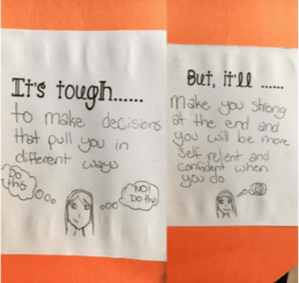 It's tough......
to make decisions
that pull you in
different ways
Do
this
NO!
Do this
But, it'll ......
Make you strong
at the end and
you will be more
self relient and
confident when
you do.